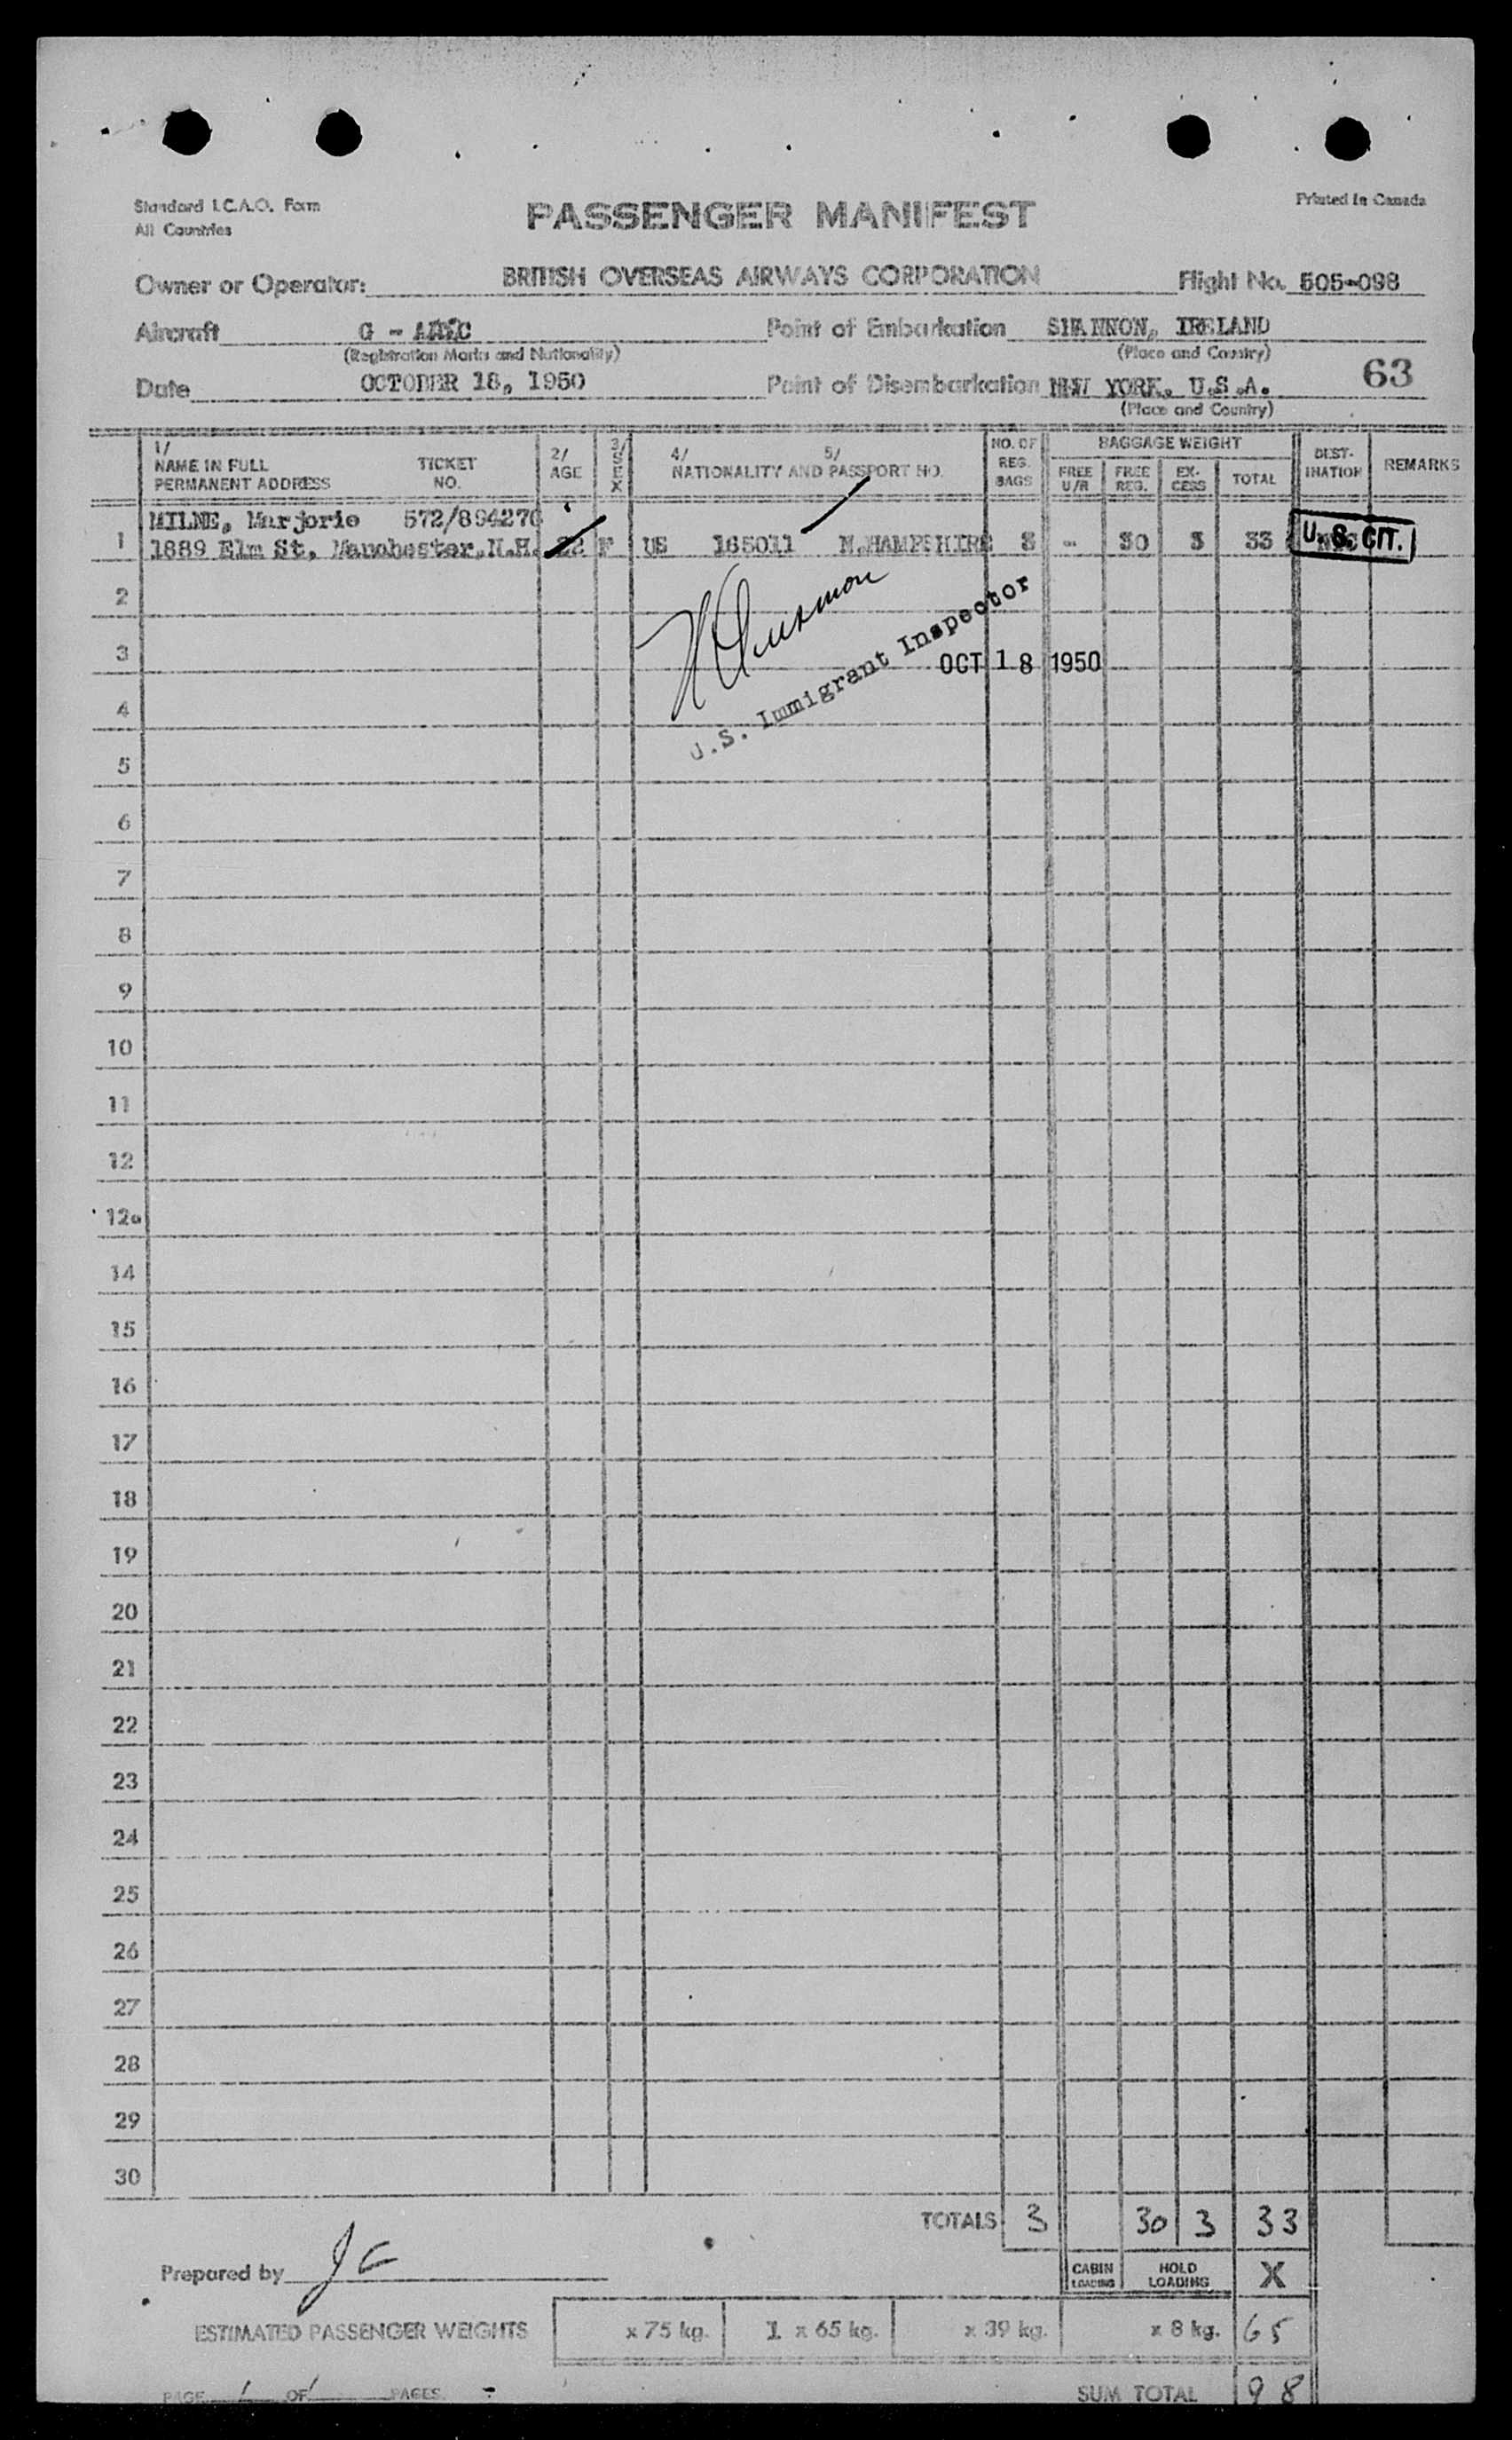 Standard I.C.A.O. Form
All Countries
PASSENGER MANIFEST
Printed in Canada
Owner or Operator: BRITISH OVERSEAS AIRWAYS CORPORATION Flight No. 505-098
Aircraft G - Point of Embarkation SHANNON, IRELAND
(Registration Marks and Nationality) (Place and Country)
Date OCTOBER 18, 1950 Point of Disembarkation NEW YORK, U.S.A. 63
(Place and Country)
1/ NAME IN FULL PERMANENT ADDRESS TICKET NO. 2/ AGE 3/ SEX 4/ NATIONALITY AND 5/ PASSPORT NO. NO. OF REG. BAGS BAGGAGE WEIGHT FREE U/R FREE REG. EX-CESS TOTAL DEST-INATION REMARKS
MILNE, Marjorie 572/894276
1 1889 Elm St, Manchester, N.H. 22 F US 165011 N.HAMPSHIRE 3 - 30 3 33 U.S. CIT.
2
U.S. Immigrant Inspector
3
OCT 18 1950
4
5
6
7
8
9
10
11
12
12a
14
15
16
17
18
19
20
21
22
23
24
25
26
27
28
29
30
TOTALS 3 30 3 33
Prepared by
CABIN LOADING HOLD LOADING X
ESTIMATED PASSENGER WEIGHTS x 75 kg. 1 x 65 kg. x 39 kg. x 8 kg. 65
PAGE 1 OF 1 PAGES SUM TOTAL 98